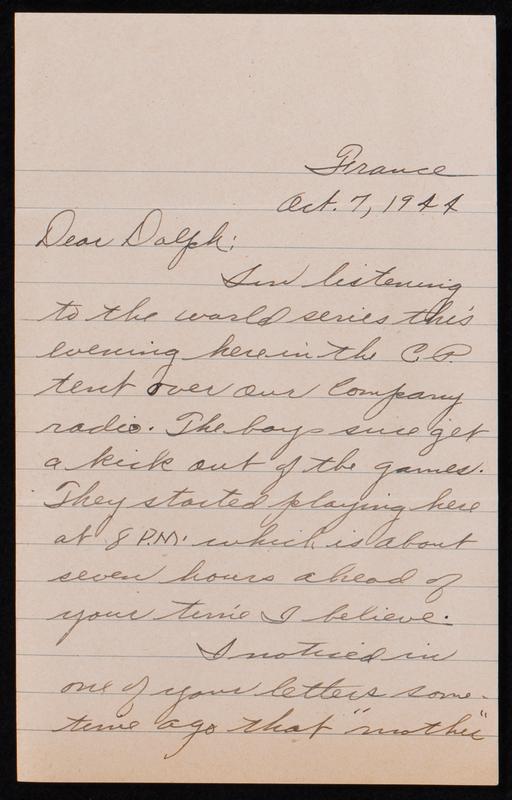 France
Oct. 7, 1944
Dear Dolph:
Im listening
to the world series this
evening here in the C.P.
tent over our Company
radio. The boys sure get
a kick out of the games.
They started playing here
at 8 P.M. which is about
seven hours ahead of
your time I believe.
I noticed in
one of your letters some-
time ago that "mother"